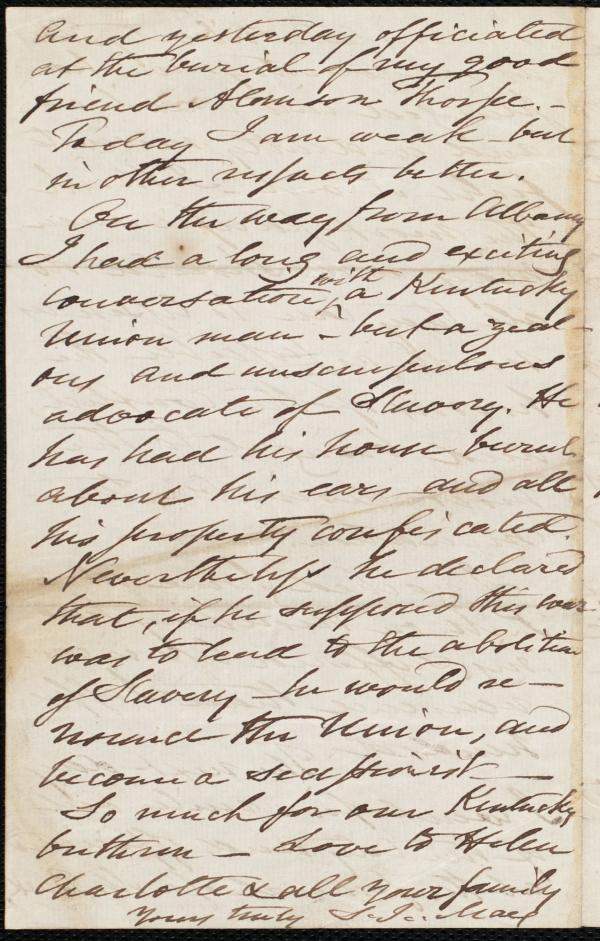 and yesterday officiated
at the burial of my good
friend Alanson Thorpe. –
Today I am weak – but
in other respects better.
On the way from Albany
I had a long and exciting
conversation, with a Kentucky
Union man – but a zeal-
ous and unscrupulous
advocate of Slavery. He
has had his house burnt
about his ears and all
his property confiscated.
Nevertheless he declared
that, if he supposed this war
was to lead to the abolition
of Slavery – he would re-
nounce the Union, and
become a secessionist –
So much for our Kentucky
brethren – Love to Helen
Charlotte & all your family
Yours truly S. J. May